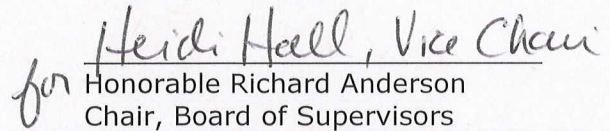 Heidi Hall, Vice Chair
for Honorable Richard Anderson
Chair, Board of Supervisors